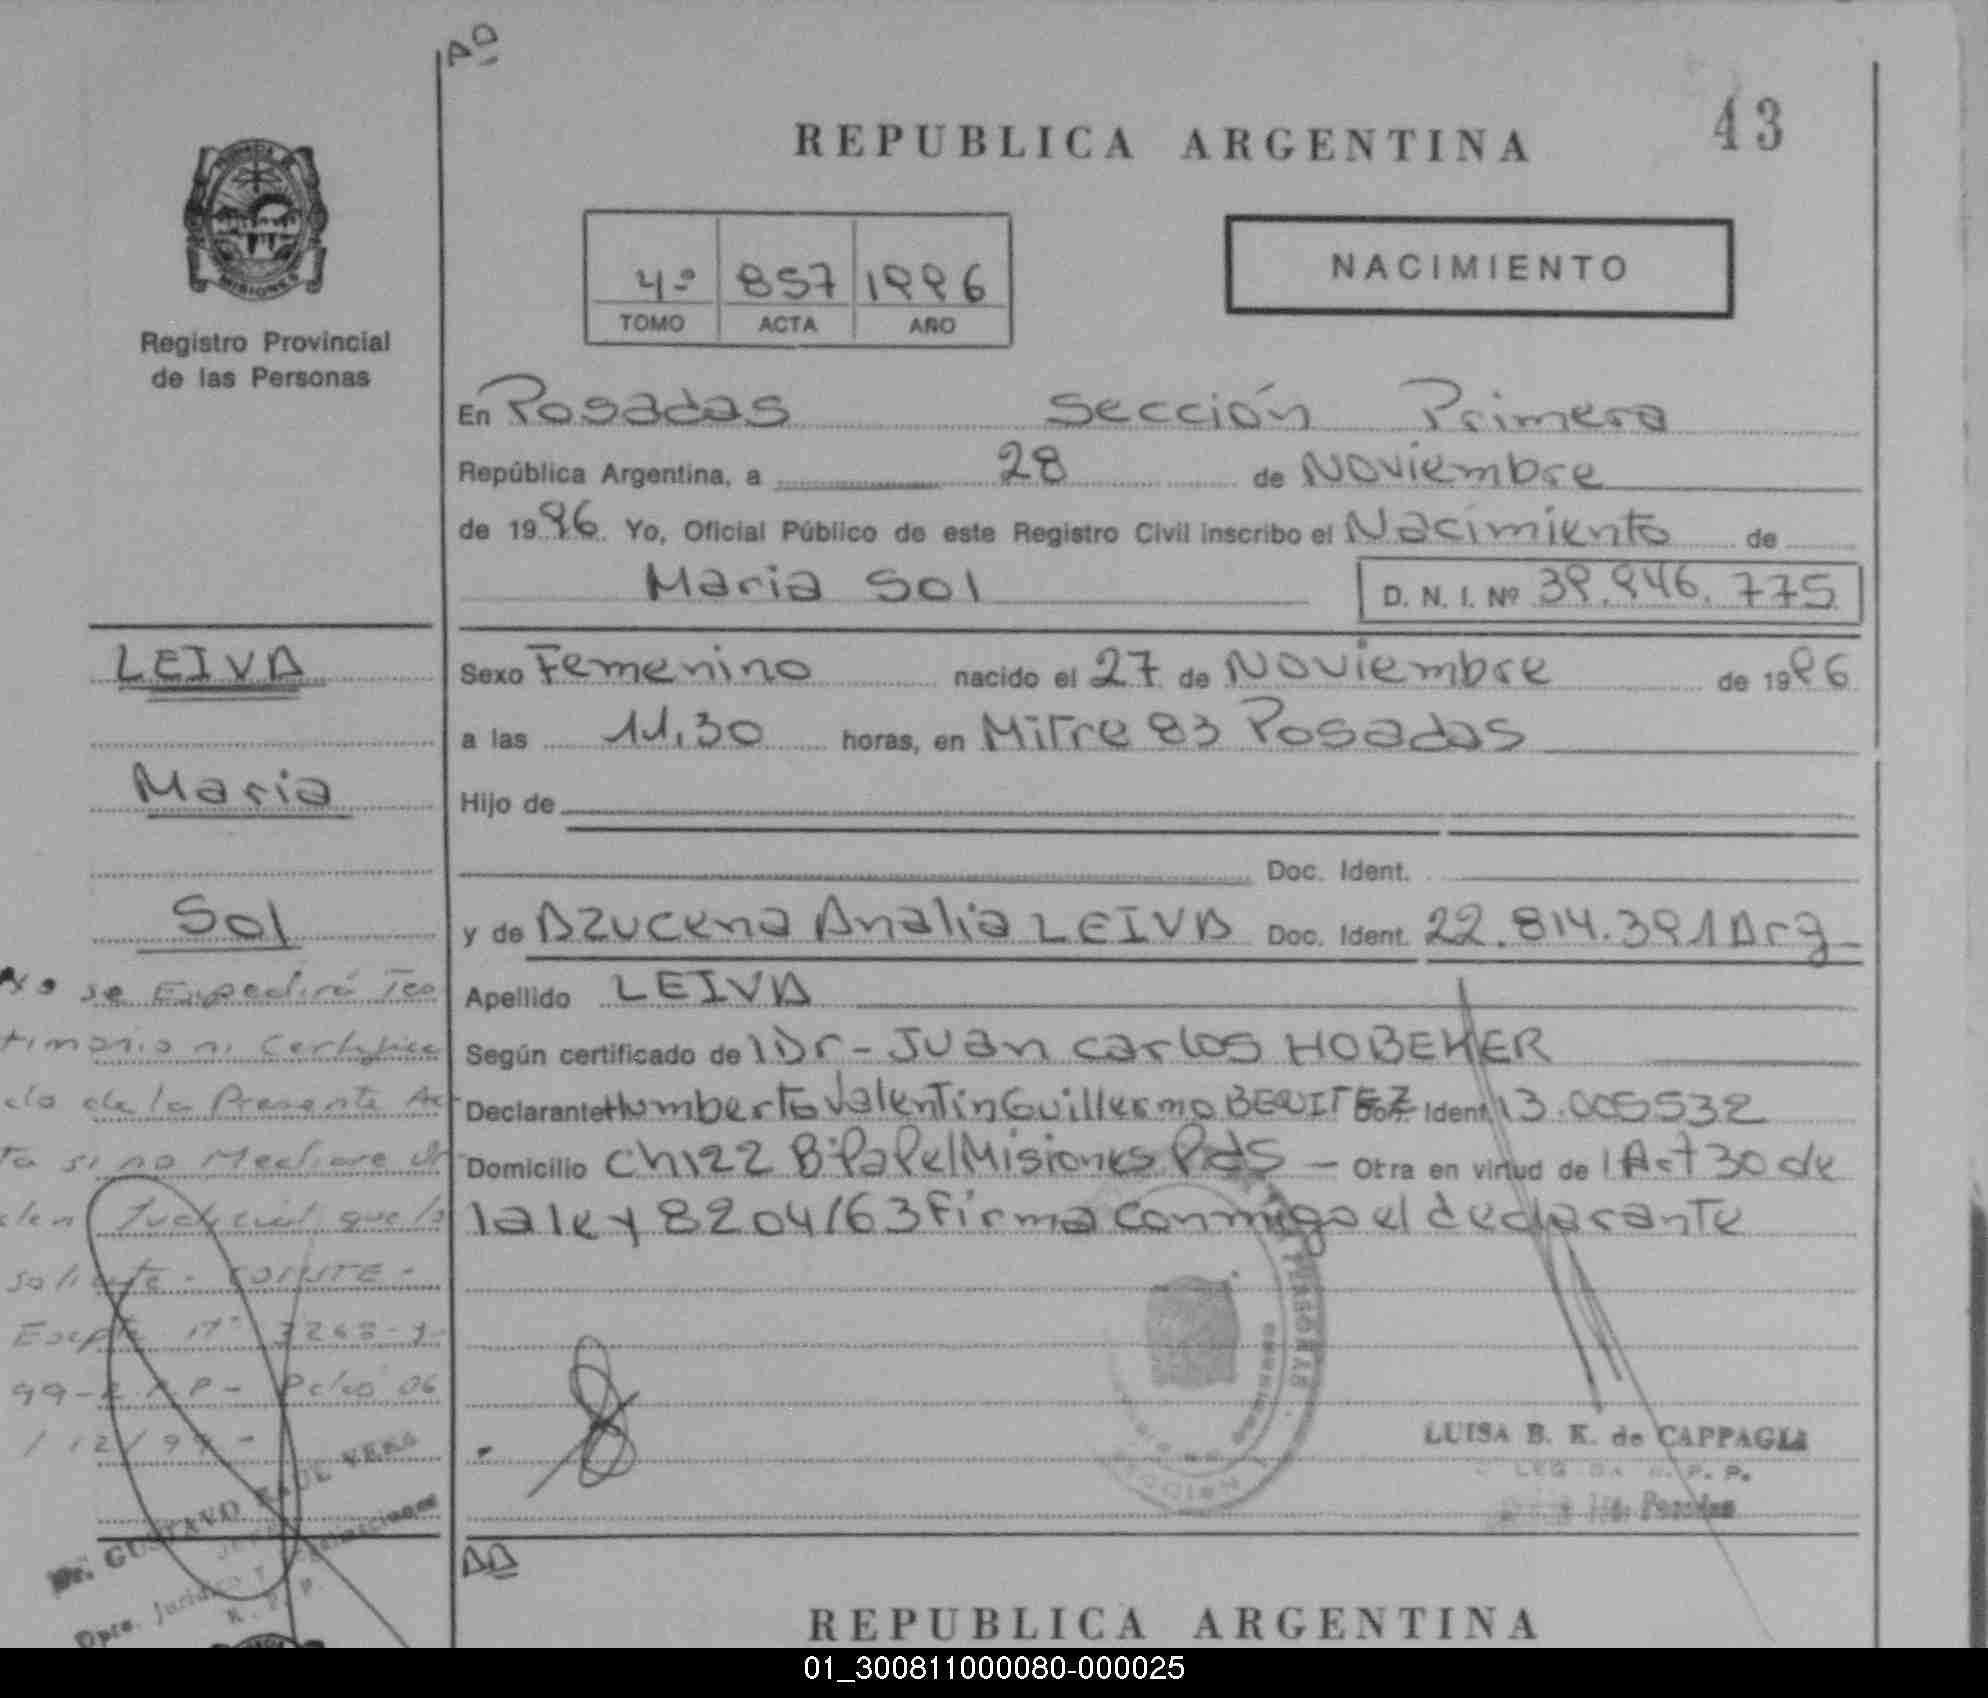 AD
43
REPUBLICA ARGENTINA
MISIONES
Registro Provincial
de las Personas
4º 857 1996
TOMO ACTA AÑO
NACIMIENTO
En Posadas Sección Primera
República Argentina, a 28 de Noviembre
de 1996. Yo, Oficial Público de este Registro Civil inscribo el Nacimiento de
Maria Sol D. N. I. Nº 39.946.775
LEIVA
Maria
Sol
Sexo Femenino nacido el 27 de Noviembre de 1996
a las 11,30 horas, en Mitre 83 Posadas
Hijo de
Doc. Ident.
y de Azucena Analia LEIVA Doc. Ident. 22.814.391 Arg
Apellido LEIVA
Según certificado de l Dr- Juan Carlos HOBEHER
Declarante Humberto Valentin Guillermo BENITEZ Doc. Ident. 13.005532
Domicilio Ch122 Bº Papel Misiones Pds - Otra en virtud de l Art 30 de
la ley 8204/63 Firma conmigo el declarante
No se Expedirá Tes
timonio ni Certifica
do de la Presente Ac
ta si no Mediare Or
den Judicial que lo
solicite - CONSTE -
Expte Nº 3268-
99-R.P.P- Pdas 06
/12/99-
Dr. GUSTAVO RAUL VERA
Dpto. Juridico y
R. P. P.
LUISA B. K. de CAPPAGLI
R. P. P.
Posadas
AD
REPUBLICA ARGENTINA
01_300811000080-000025